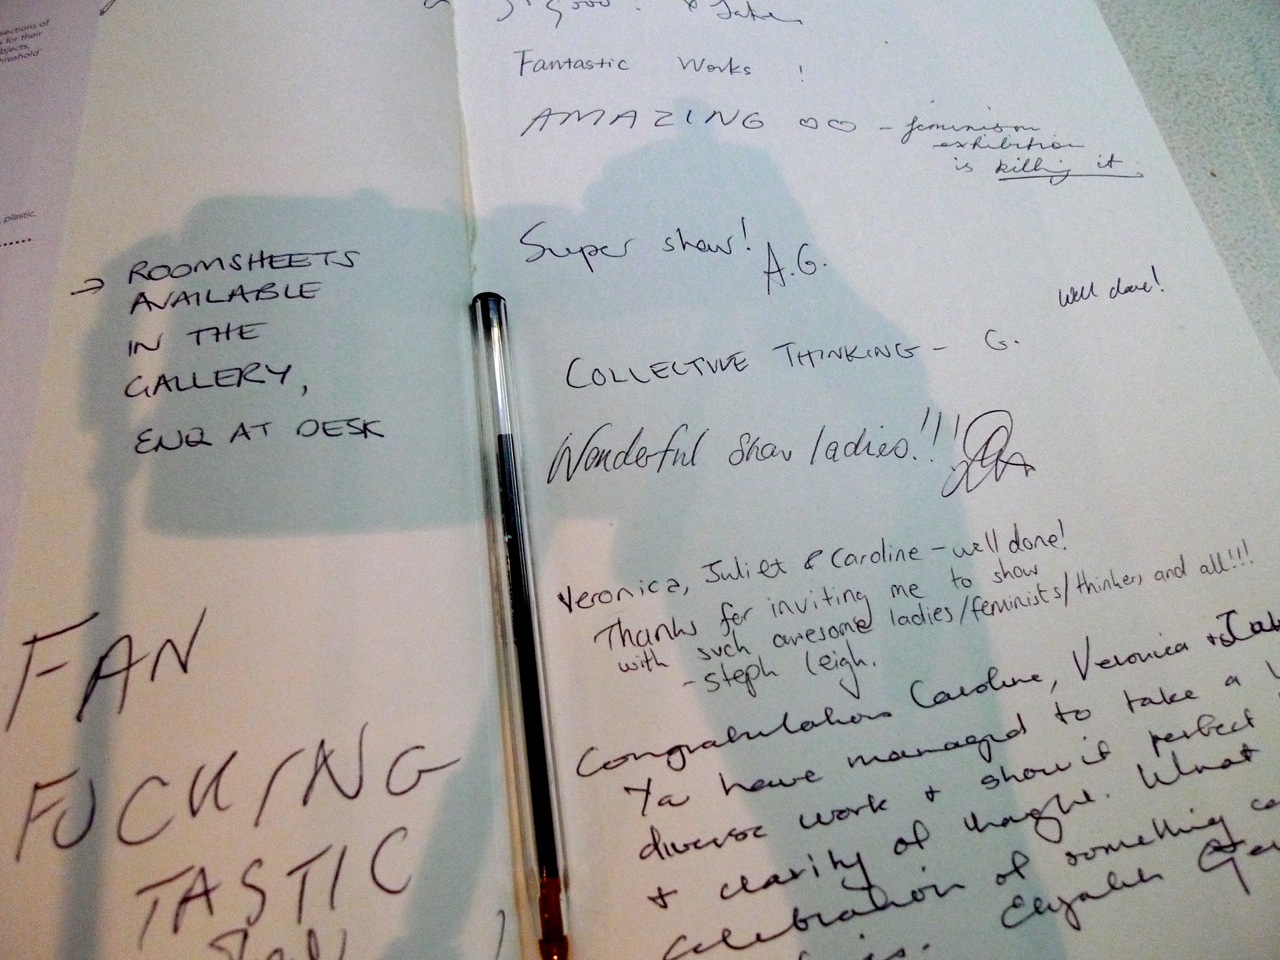 sections of
for their
threshold
plastic,
→ ROOMSHEETS
AVAILABLE
IN THE
GALLERY,
ENQ AT DESK
FAN
FUCKING
TASTIC
Fantastic Works !
AMAZING ♡♡ – feminism
exhibition
is killing it.
Super show! A.G.
Well done!
COLLECTIVE THINKING – G.
Wonderful show ladies!!!
Veronica, Juliet & Caroline – well done!
Thanks for inviting me to show
with such awesome ladies/feminists/thinkers and all!!!
- steph leigh.
Congratulations Caroline, Veronica +
Ya have managed to take a
diverse work + show it perfect
+ clarity of thought. What
celebration of something
Elizabeth